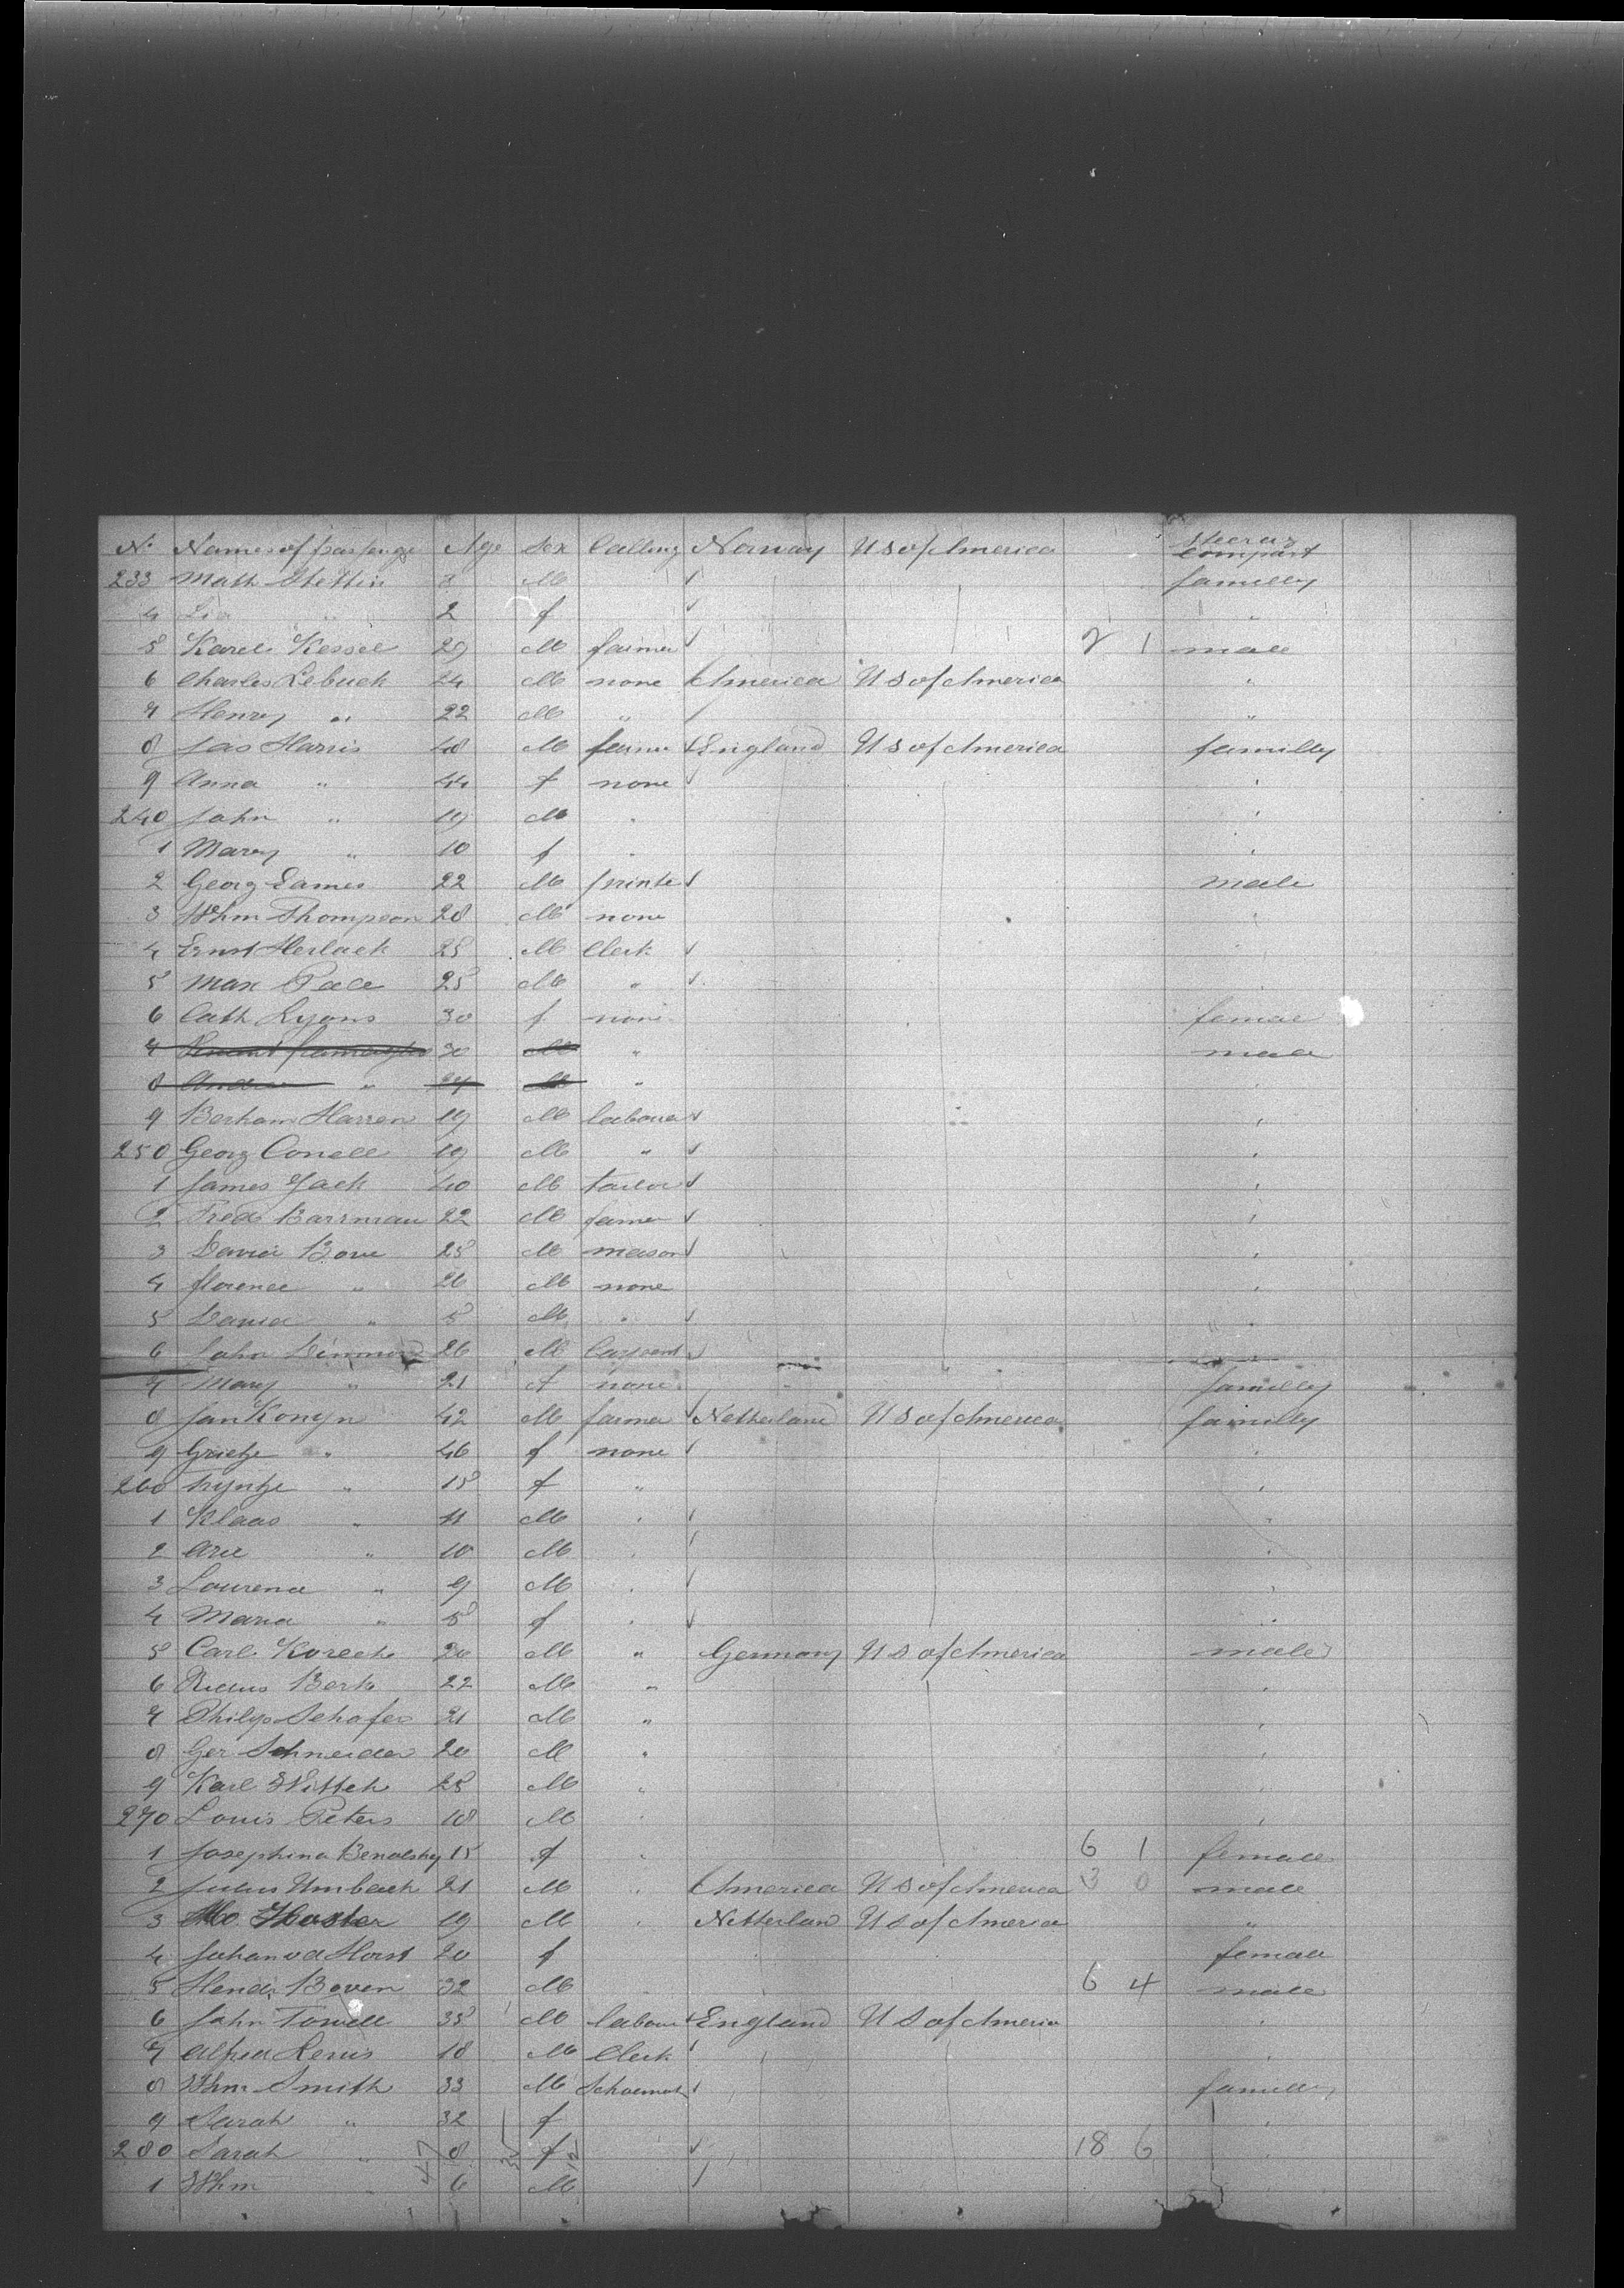 No Names of passenge Age Sex Calling Norway US of America steerag compart
233 Math Stettin 3 M familly
4 2 f "
5 Karel Kessel 29 M farmer 2 1 male
6 Charles Lebuck 24 M none America US of America "
7 Henry " 22 M " "
8 Jas Harris 48 M farmer England US of America familly
9 Anna " 44 f none "
240 John " 19 M " "
1 Mary " 10 f " "
2 Georg Eames 22 M printer male
3 Whm Thompson 28 M none "
4 Ernst Herlack 25 M Clerk "
5 Max 25 M " "
6 Cath Lyons 30 f none female
7 30 M " male
8 " M " "
9 Berham Harren 19 M laboure "
250 Georg Conell 19 M " "
1 James Jack 40 M tailor "
2 Fred Barrman 22 M farmer "
3 David Bove 25 M mason "
4 florence " 26 M none "
5 David " 5 M " "
6 John 26 M Carpent
7 Mary " 21 f none familly
8 Jan Konyn 42 M farmer Netherland US of America familly
9 Grietje " 46 f none "
260 Tryntje " 15 f " "
1 Klaas " 11 M " "
2 Arie " 10 M " "
3 Lourena " 9 M " "
4 Maria " 5 f " "
5 Carl Korech 20 M " Germany US of America male
6 Berk 22 M " "
7 Philip Schafer 21 M " "
8 Ger Schneider 20 M " "
9 Karl Wittek 25 M " "
270 Louis Peters 18 M " "
1 Josephina Benolshy 15 f " 6 1 female
2 Julius Umbach 21 M " America US of America 3 0 male
3 Koster 19 M " Netterlan US of America "
4 Johan vd Horst 20 f female
5 Hend. Boven 32 M 6 4 male
6 John Towell 35 M labour England US of America "
7 Alfred Lewis 18 M Clerk "
8 Whm Smith 33 M Schoemak familly
9 Sarah " 32 f "
280 Sarah " 8 f 18 6 "
1 Whm " 6 M